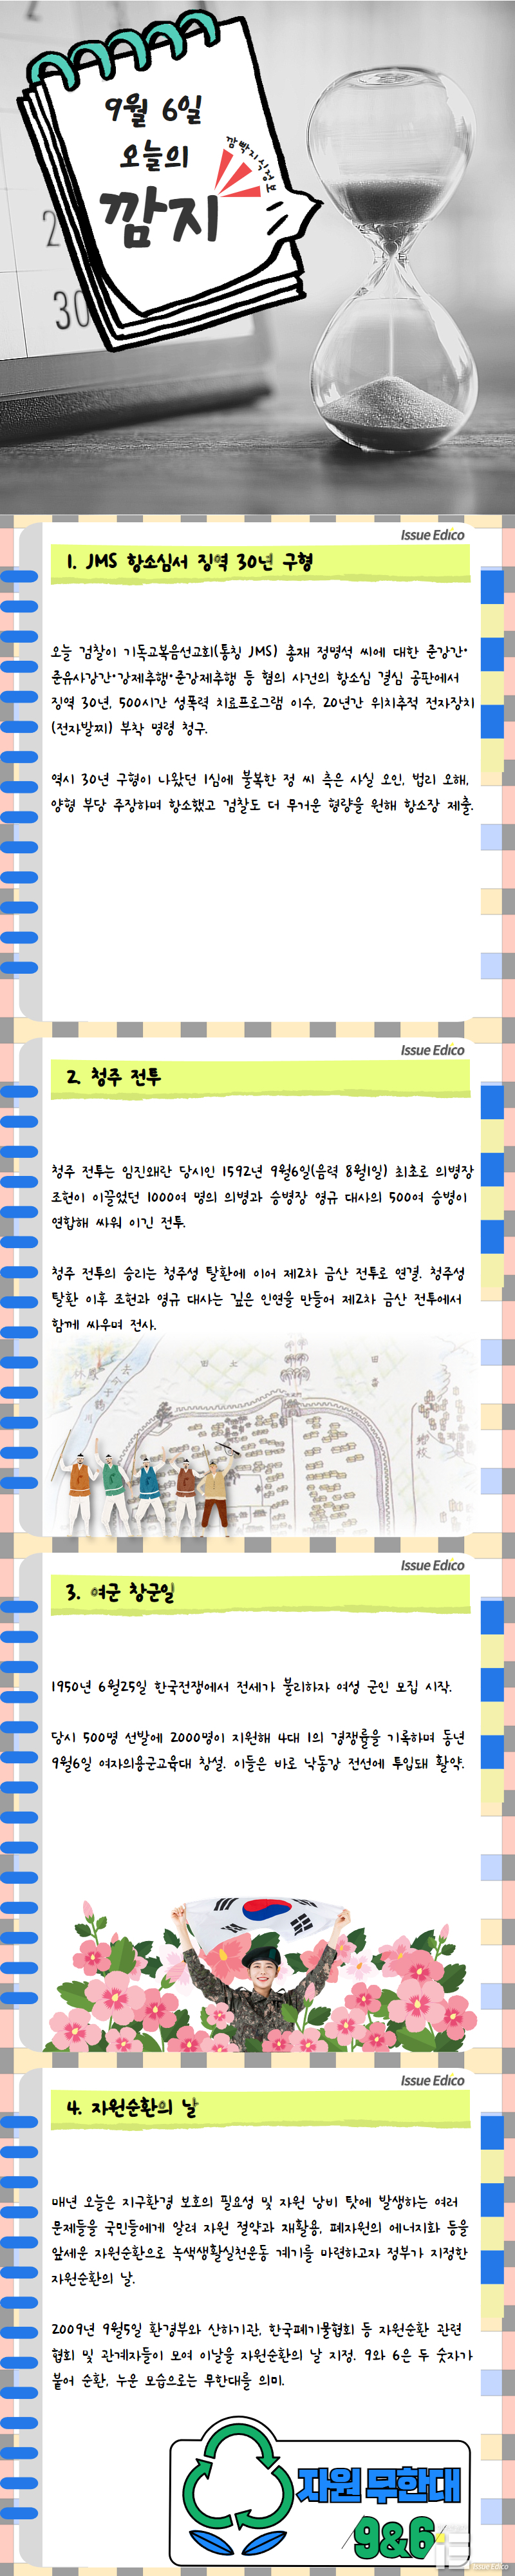 9월 6일
오늘의
깜지
깜빡지식정보
30
Issue Edico
1. JMS 항소심서 징역 30년 구형
오늘 검찰이 기독교복음선교회(통칭 JMS) 총재 정명석 씨에 대한 준강간·
준유사강간·강제추행·준강제추행 등 혐의 사건의 항소심 결심 공판에서
징역 30년, 500시간 성폭력 치료프로그램 이수, 20년간 위치추적 전자장치
(전자발찌) 부착 명령 청구.
역시 30년 구형이 나왔던 1심에 불복한 정 씨 측은 사실 오인, 법리 오해,
양형 부당 주장하며 항소했고 검찰도 더 무거운 형량을 원해 항소장 제출.
Issue Edico
2. 청주 전투
청주 전투는 임진왜란 당시인 1592년 9월6일(음력 8월1일) 최초로 의병장
조헌이 이끌었던 1000여 명의 의병과 승병장 영규 대사의 500여 승병이
연합해 싸워 이긴 전투.
청주 전투의 승리는 청주성 탈환에 이어 제2차 금산 전투로 연결. 청주성
탈환 이후 조헌과 영규 대사는 깊은 인연을 만들어 제2차 금산 전투에서
함께 싸우며 전사.
Issue Edico
3. 여군 창군일
1950년 6월25일 한국전쟁에서 전세가 불리하자 여성 군인 모집 시작.
당시 500명 선발에 2000명이 지원해 4대 1의 경쟁률을 기록하며 동년
9월6일 여자의용군교육대 창설. 이들은 바로 낙동강 전선에 투입돼 활약.
Issue Edico
4. 자원순환의 날
매년 오늘은 지구환경 보호의 필요성 및 자원 낭비 탓에 발생하는 여러
문제들을 국민들에게 알려 자원 절약과 재활용, 폐자원의 에너지화 등을
앞세운 자원순환으로 녹색생활실천운동 계기를 마련하고자 정부가 지정한
자원순환의 날.
2009년 9월5일 환경부와 산하기관, 한국폐기물협회 등 자원순환 관련
협회 및 관계자들이 모여 이날을 자원순환의 날 지정. 9와 6은 두 숫자가
붙어 순환, 누운 모습으로는 무한대를 의미.
자원 무한대
9&6
Issue Edico